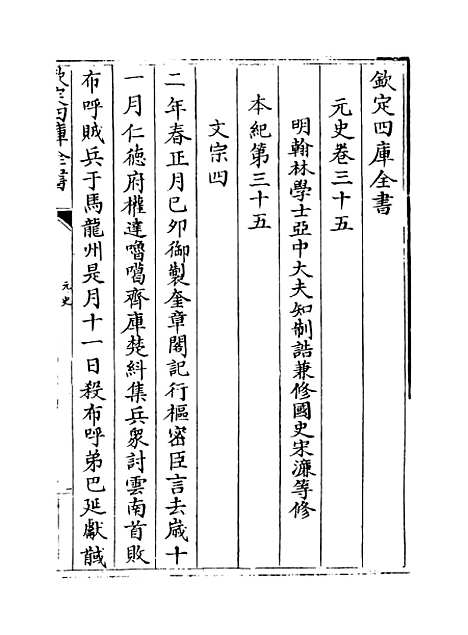 欽定四庫全書
元史卷三十五
明翰林學士亞中大夫知制誥兼修國史宋濂等修
本紀第三十五
文宗四
二年春正月己卯御製奎章閣記行樞密臣言去歲十
一月仁德府權達嚕噶齊庫楚糾集兵衆討雲南首敗
布呼賊兵于馬龍州是月十一日殺布呼弟巴延獻馘
欽定四庫全書
元史